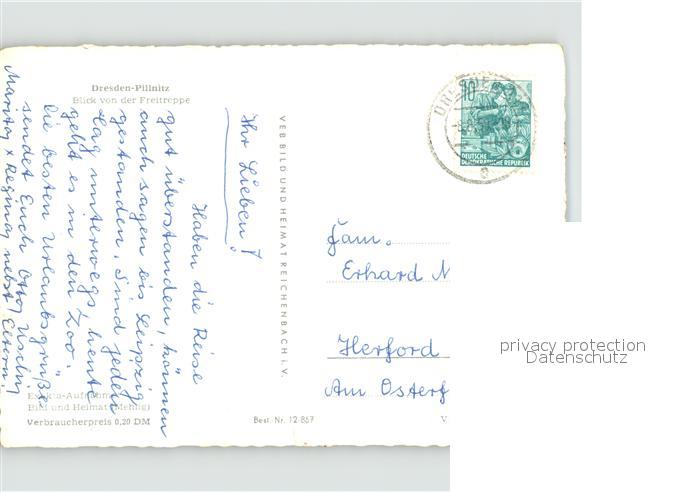 Dresden-Pillnitz
Blick von der Freitreppe
Ihr Lieben!
Haben die Reise
gut überstanden, können
auch sagen bis Leipzig
gestanden. Sind jeden
Tag unterwegs, heute
geht es in den Zoo.
Die besten Urlaubsgrüße
sendet Euch Otto, Uschi,
Marita, + Regina nebst Eltern.
Exakta-Aufnahme
Bild und Heimat (Mehlig)
Verbraucherpreis 0,20 DM
VEB BILD UND HEIMAT REICHENBACH I. V.
Best. Nr. 12-867
V
DRESDEN
10
DEUTSCHE
DEMOKRATISCHE REPUBLIK
e
Fam.
Erhard
Herford
Am Osterf
privacy protection
Datenschutz